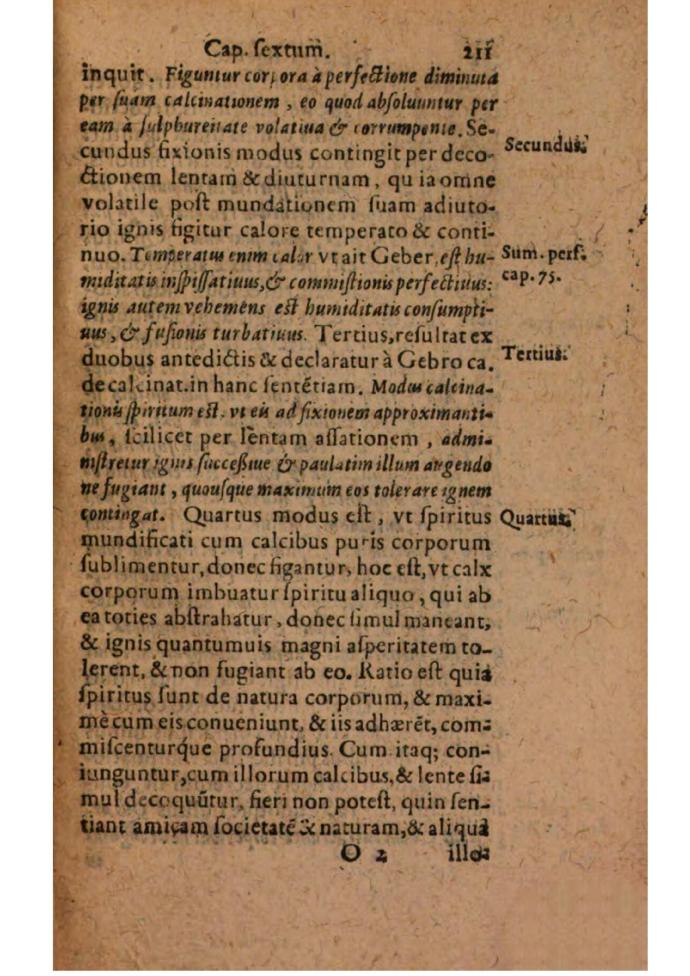 Cap. ſextum. 211
inquit. Figuntur corpora à perfectione diminuta
per ſuam calcinationem, eo quod abſoluuntur per
eam à ſulphureitate volatiua & corrumpente. Se-
cundus fixionis modus contingit per deco-
Secundus.
ctionem lentam & diuturnam, quia omne
volatile poſt mundationem ſuam adiuto-
rio ignis figitur calore temperato & conti-
nuo. Temperatus enim calor vt ait Geber, eſt hu-
Sum. perf.
miditatis inſpiſſatiuus, & commiſtionis perfectiuus:
cap. 75.
ignis autem vehemens eſt humiditatis conſumpti-
uus, & fuſionis turbatiuus. Tertius, reſultat ex
duobus antedictis & declaratur à Gebro ca.
Tertius.
de calcinat. in hanc ſentẽtiam. Modus calcina-
tionis ſpirituum eſt. vt eis ad fixionem approximanti-
bus, ſcilicet per lentam aſſationem, admi-
niſtretur ignis ſucceſſiue & paulatim illum augendo
ne fugiant, quouſque maximum eos tolerare ignem
contingat. Quartus modus eſt, vt ſpiritus
Quartus.
mundificati cum calcibus puris corporum
ſublimentur, donec figantur, hoc eſt, vt calx
corporum imbuatur ſpiritu aliquo, qui ab
ea toties abſtrahatur, donec ſimul maneant,
& ignis quantumuis magni aſperitatem to-
lerent, & non fugiant ab eo. Ratio eſt quia
ſpiritus ſunt de natura corporum, & maxi-
mè cum eis conueniunt, & iis adhærẽt, com-
miſcenturq́ue profundius. Cum itaq; con-
iunguntur, cum illorum calcibus, & lente ſi-
mul decoquũtur, fieri non poteſt, quin ſen-
tiant amicam ſocietatẽ & naturam, & aliquã
O 2